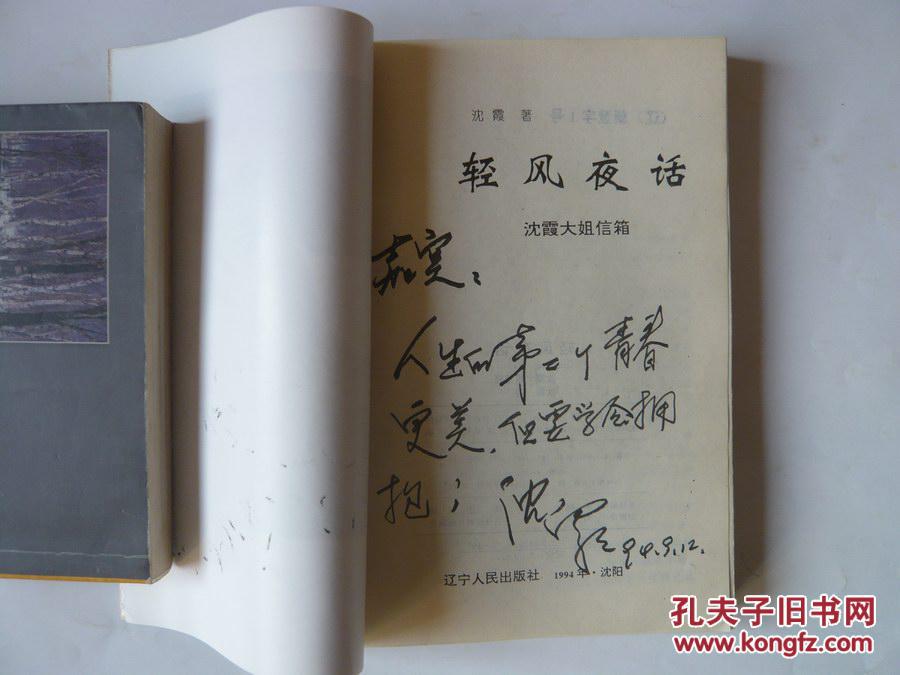 沈霞 著
轻风夜话
沈霞大姐信箱
人生的第二个青春
更美，但要学会拥
抱；
94.9.12.
辽宁人民出版社 1994年·沈阳
孔夫子旧书网
www.kongfz.com